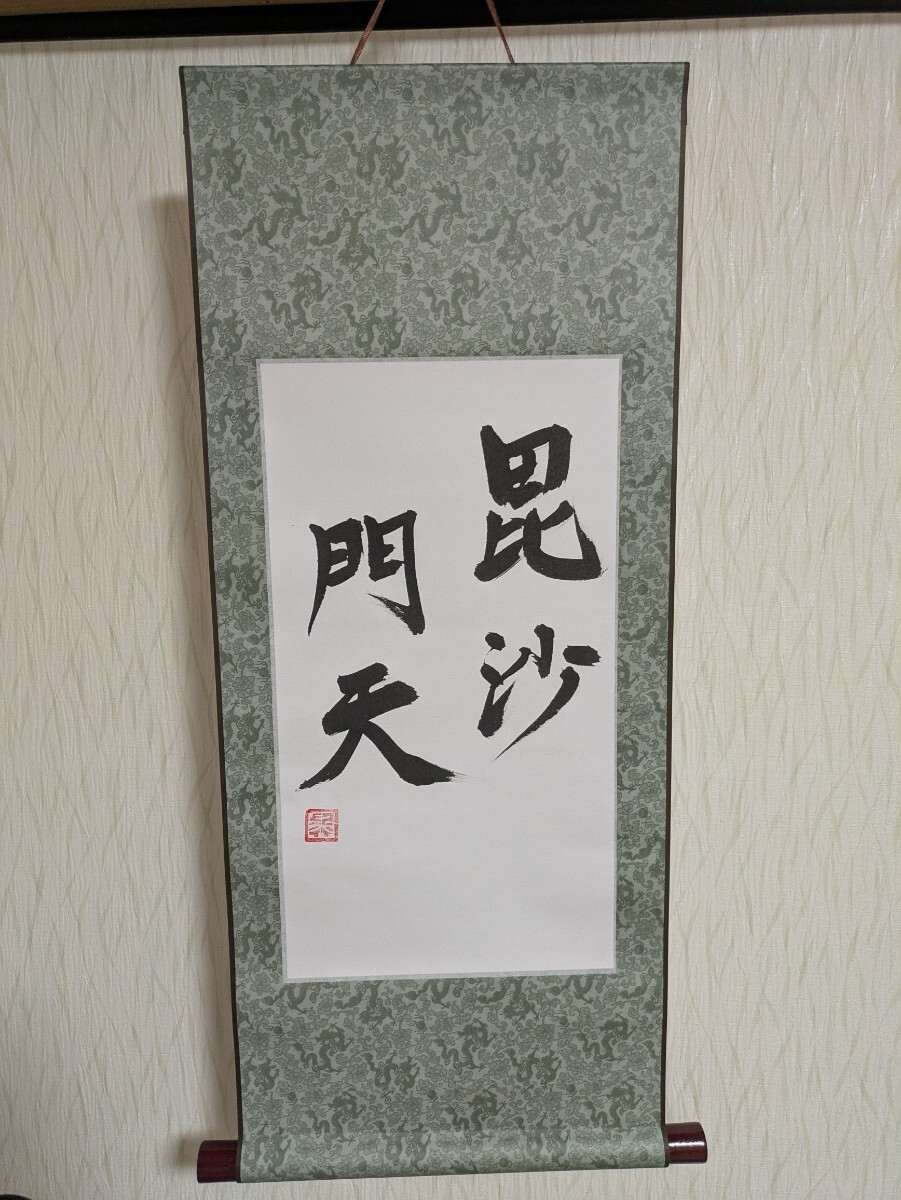 毘沙
門天